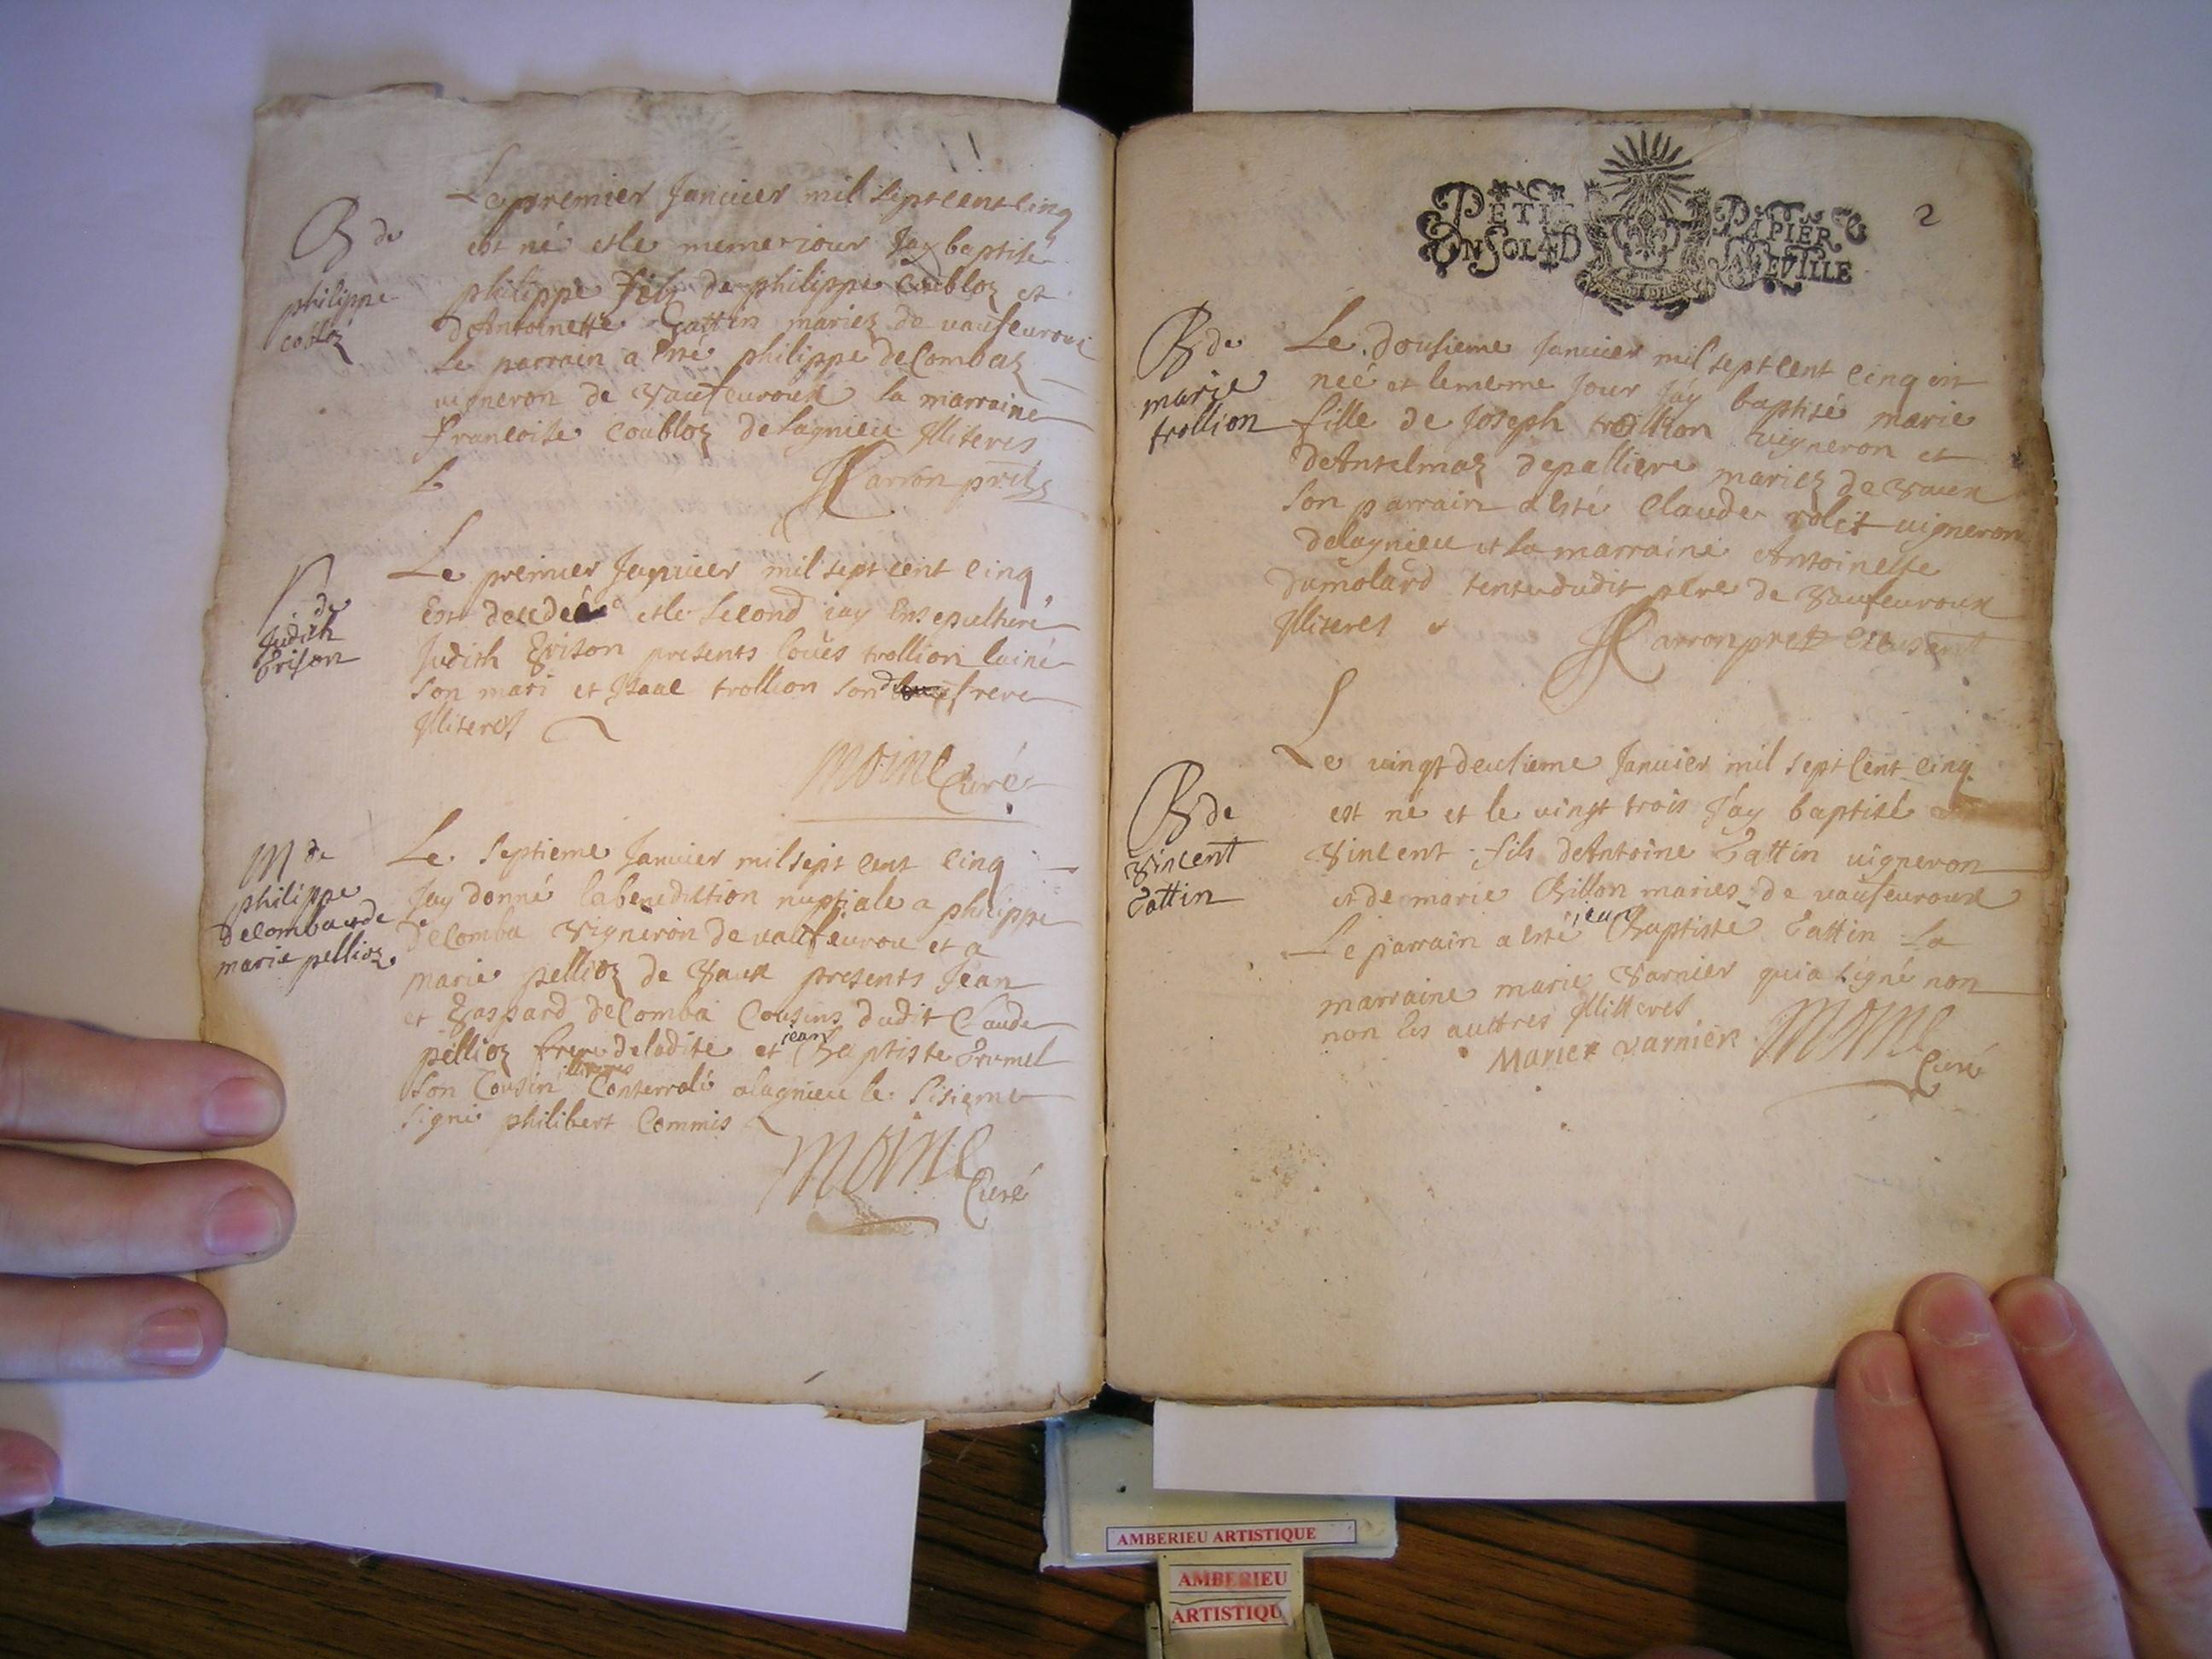 Le premier Januier mil sept cent cinq
B de
est né et le meme jour Jay baptisé
philippe
philippe fils de philippe Coubloz et
costoz
dAntoinette Gattin mariez de vaufeuroux
Le parrain a esté philippe deCombaz
uigneron de Vaufeuroux la marraine
francoise Coubloz de lagnieu Illiteres
Carron pretre
Le premier Januier mil sept cent cinq
de
Judith
Grison
Est decedeé et le second jay Ensepulturé
Judith Grison presents loues trollion lainé
son mari et Isaac trollion son frere
Illiteres
Moine Curé
M de
philippe
decomba et de
marie pellioz
Le septieme Januier mil sept cent cinq
Jay donné la benediction nuptiale a philippe
deComba Vigneron de vaufeurou et a
marie pellioz de Vaux presents Jean
et Gaspard deComba Cousins dudit Claude
pellioz frere de ladite et jean Baptiste
son Cousin illiteres Conterrolé a lagnieu le sisieme
signé philibert Commis
Moine
Curé
PETIT PAPIER
2
ON SOL & D LA FEVILLE
B de
marie
trollion
Le dousieme Januier mil sept cent cinq est
neé et le meme jour Jáy baptisé marie
fille de Joseph trollion uigneron et
deAntelmaz depalliere mariez de Vaux
son parrain a esté Claude rolet uigneron
de lagnieu et la marraine Antoinette
dumolard tente dudit pere de Vaufeuroux
Illiteres
Carron pret
Le uingt deusieme Januier mil sept Cent cinq
B de
Vincent
Gattin
est né et le uingt trois Jáy baptisé
Vincent fils deAntoine Gattin uigneron
et de marie Billon maries de vaufeuroux
Le parrain a esté jean Baptiste Gattin La
marraine marie Varnier qui a signé non
non les auttres Illitteres
Marier varnier
Moine
Curé
AMBERIEU ARTISTIQUE
AMBERIEU
ARTISTIQU